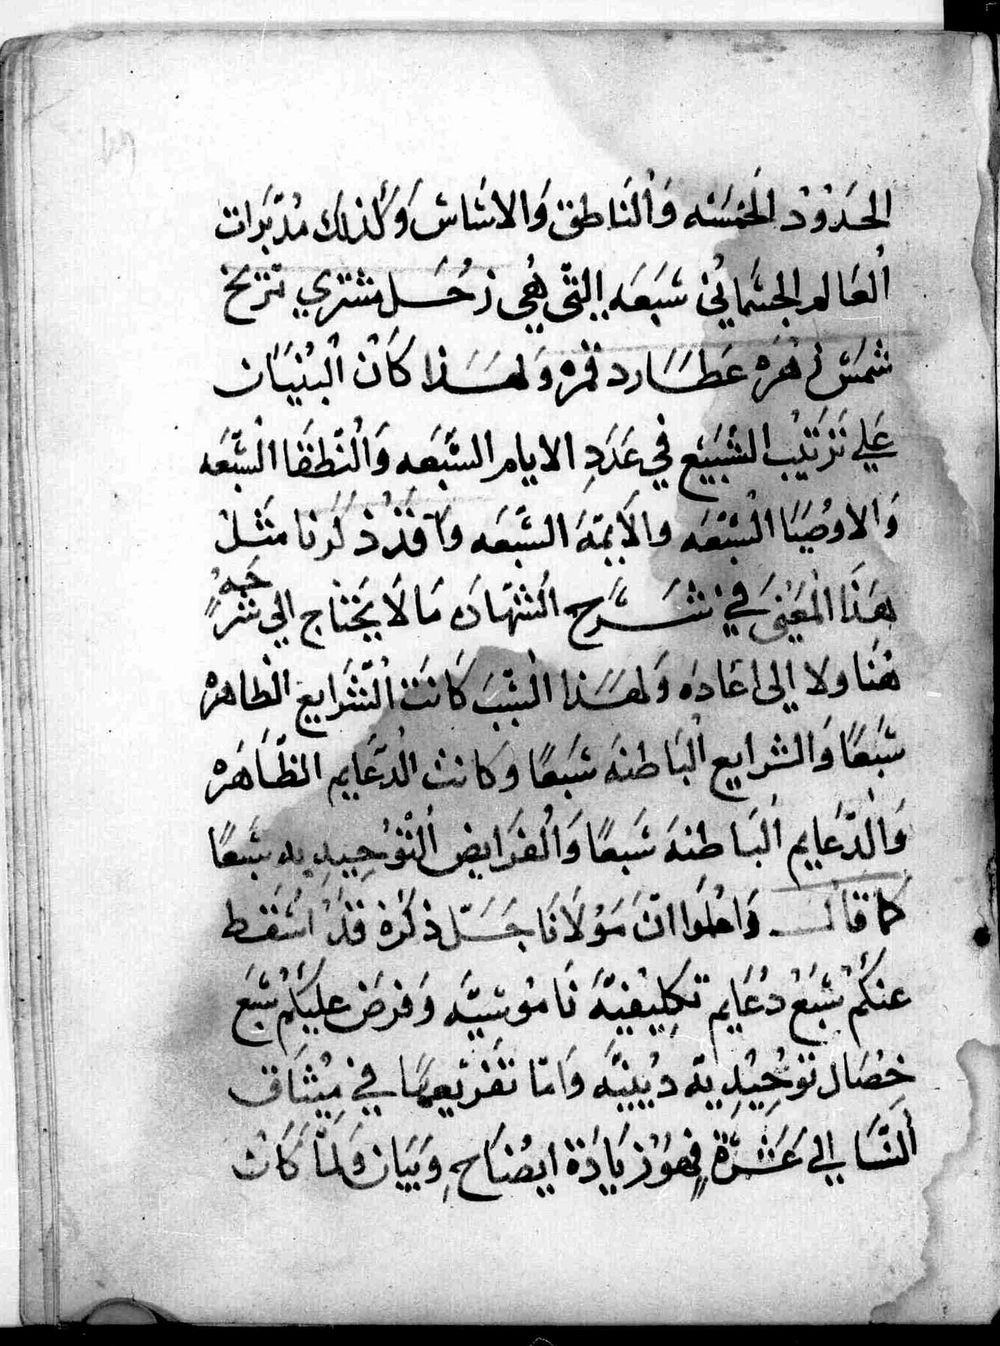 الحدود الخمسه والناطق والاساس وكذلك مدبرات
العالم الجسماني سبعه التي هي زحل مشتري مريخ
شمس زهره عطارد قمره ولهذا كان البنيان
علي ترتيب السبيع في عدد الايام السبعه والنطقا السبعه
والاوصيا السبعه والايمة السبعه وقد ذكرنا مثل
هذا المعنى في شرح الشهاده ما لا يحتاج الي شرحه
هنا ولا الى اعاده ولهذا السبب كانت الشرايع الظاهره
سبعًا والشرايع الباطنه سبعًا وكانت الدعايم الظاهره
والدعايم الباطنه سبعًا والفرايض التوحيديه سبعًا
كما قال واعلموا ان مولانا جل ذكره قد اسقط
عنكم سبع دعايم تكليفيه ناموسيه وفرض عليكم سبع
خصال توحيديه دينيه واما تفريعها في ميثاق
النسا الي عشرة فهو زيادة ايضاح وبيان ولما كان